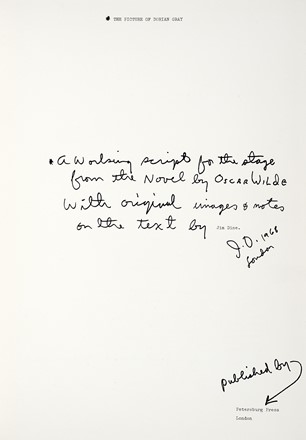 * THE PICTURE OF DORIAN GRAY
* A Working script for the stage
from the Novel by OSCAR WILDE
With original images & notes
on the text by Jim Dine.
J.D. 1968
London
published by
Petersburg Press
London